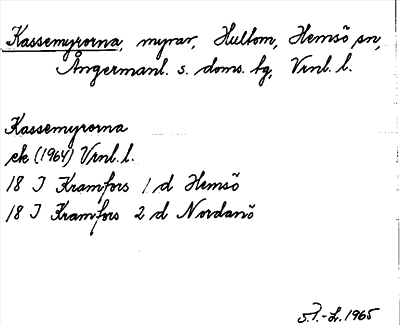 Kassemyrorna, myrar, Hultom, Hemsö sn,
Ångermanl. s. doms. fg, Vrnl. l.
Kassemyrorna
ek (1964) Vrnl. l.
18 I Kramfors 1 d Hemsö
18 I Kramfors 2 d Nordanö
1965